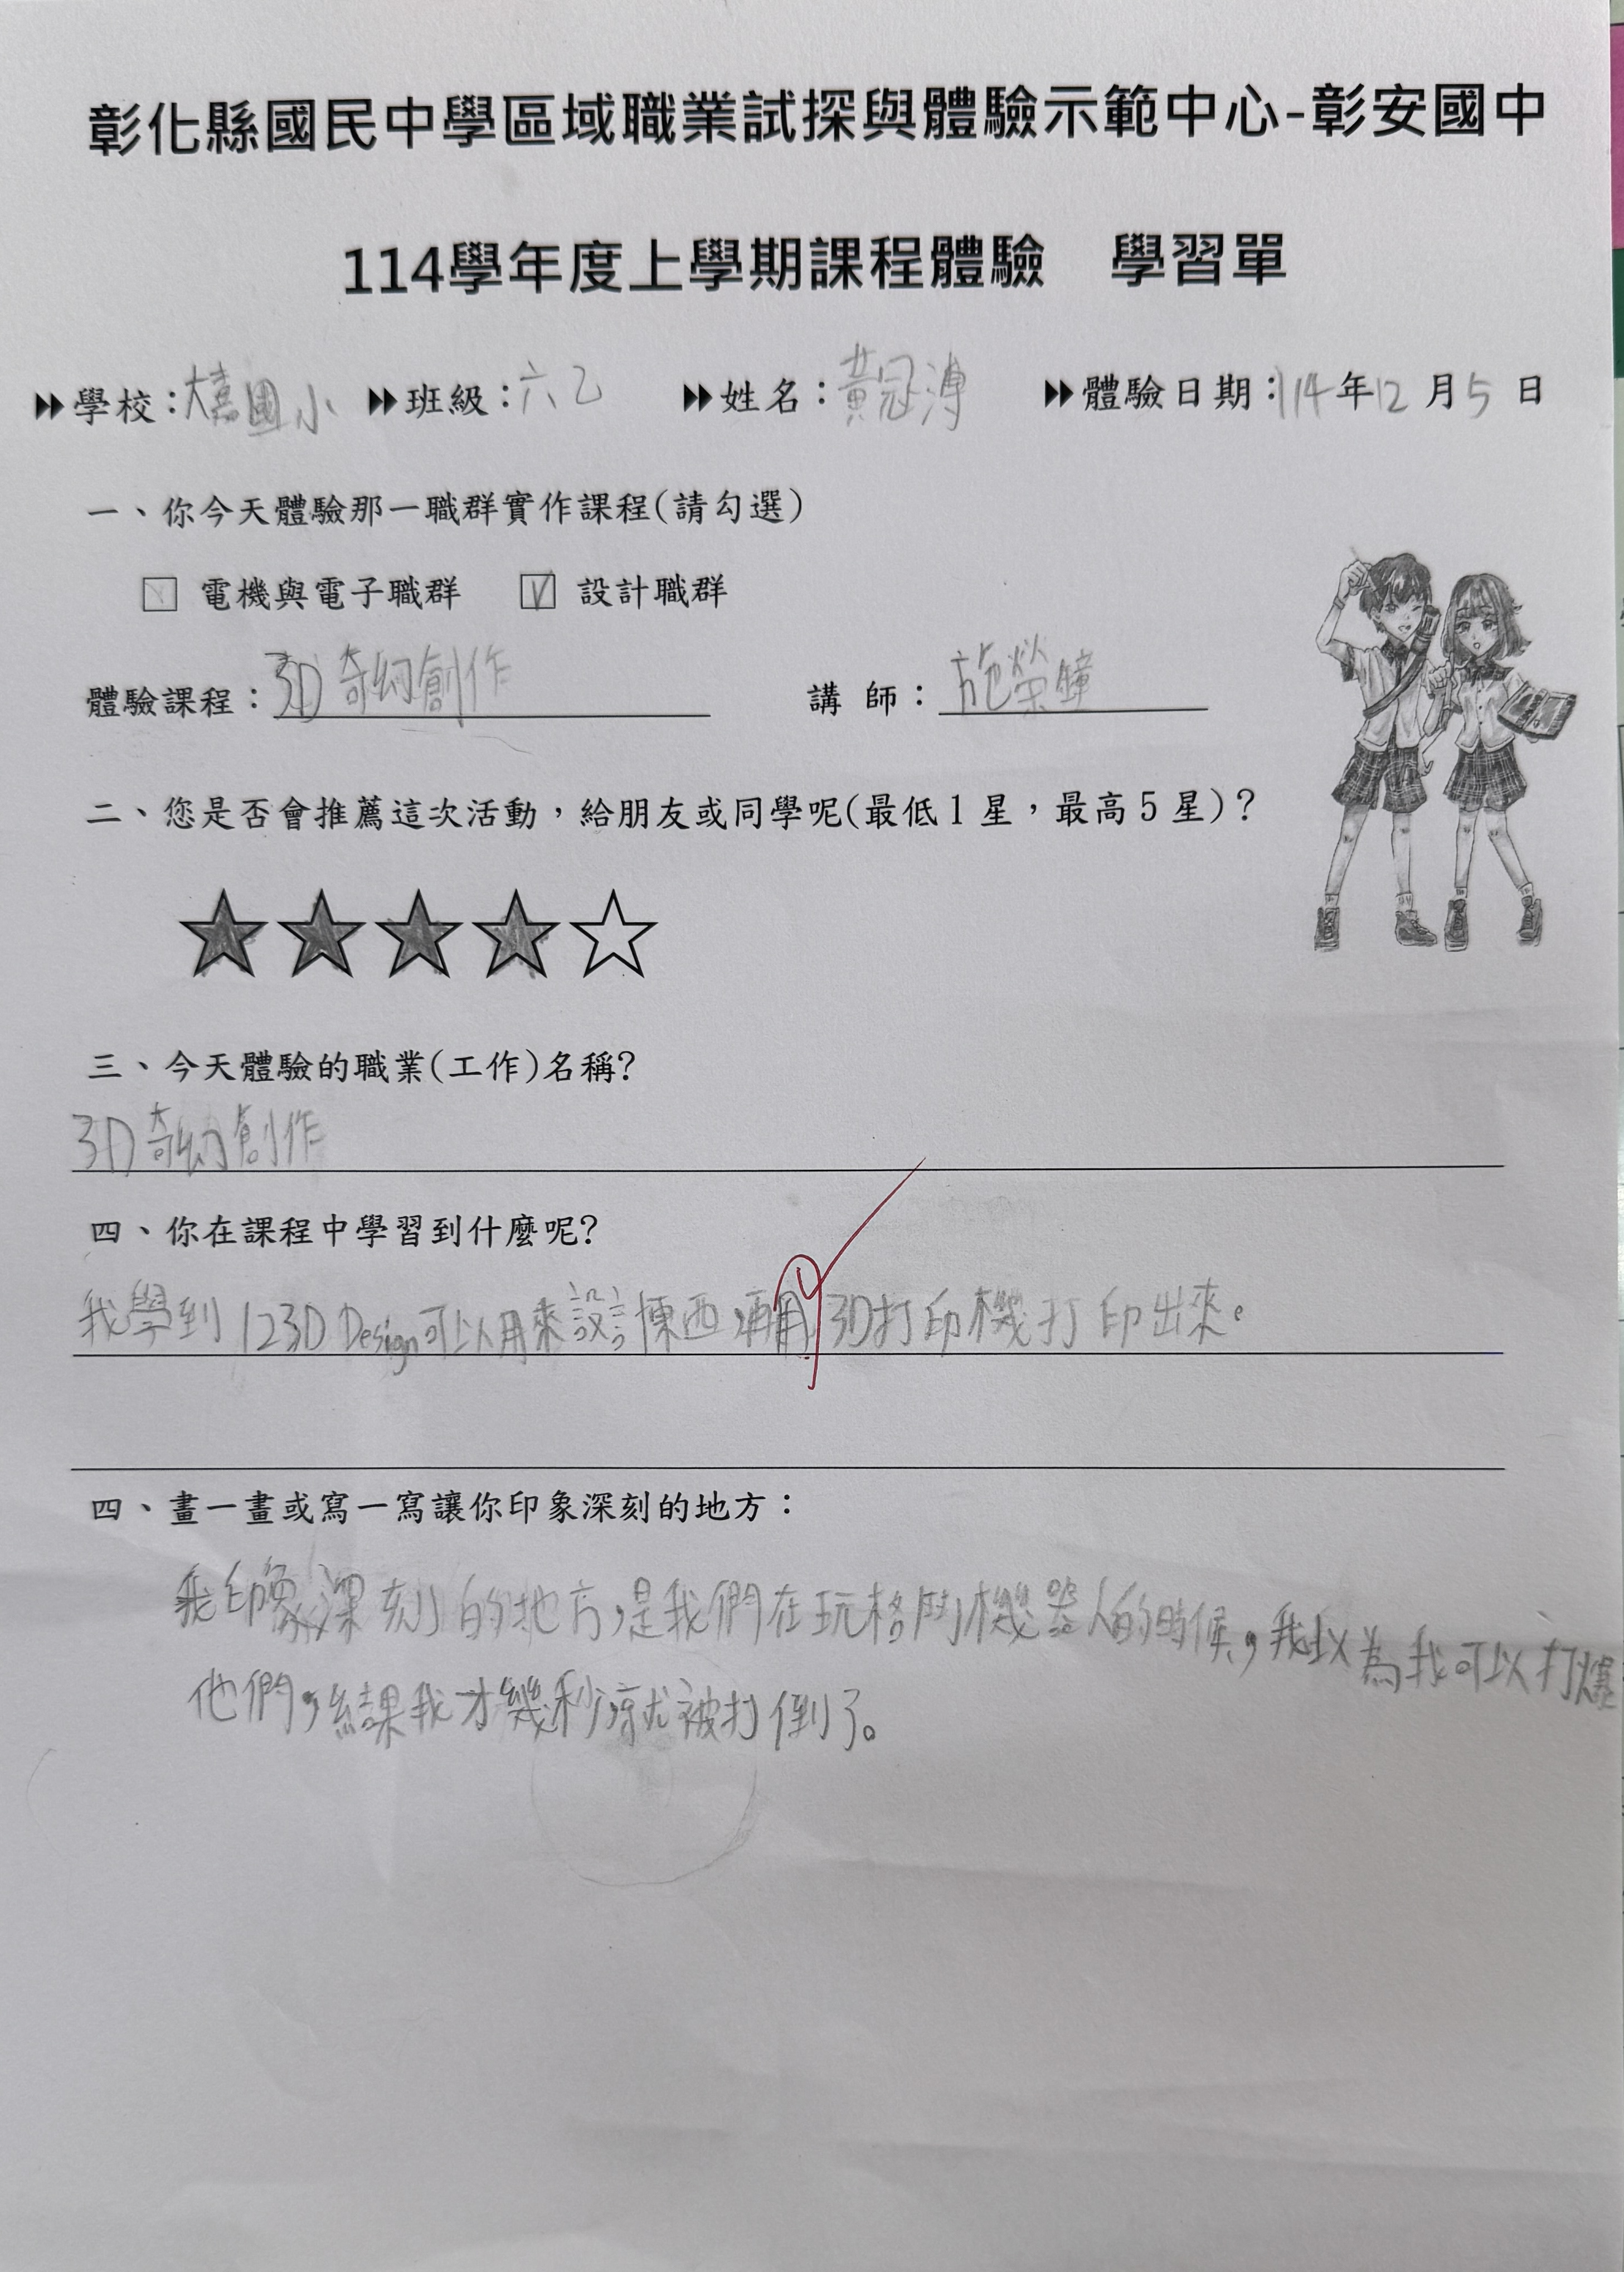 彰化縣國民中學區域職業試探與體驗示範中心-彰安國中
114學年度上學期課程體驗 學習單
學校:大嘉國小 班級:六乙 姓名:黃冠溥 體驗日期:114年12月5日
一、你今天體驗那一職群實作課程(請勾選)
□ 電機與電子職群 ☑ 設計職群
體驗課程:3D奇幻創作 講 師:施榮鐘
二、您是否會推薦這次活動,給朋友或同學呢(最低1星,最高5星)?
★★★★☆
三、今天體驗的職業(工作)名稱?
3D奇幻創作
四、你在課程中學習到什麼呢?
我學到123D Design可以用來設計東西,再用3D打印機打印出來。
四、畫一畫或寫一寫讓你印象深刻的地方:
我印象深刻的地方,是我們在玩格鬥機器人的時候,我以為我可以打爆
他們,結果我才幾秒,就被打倒了。